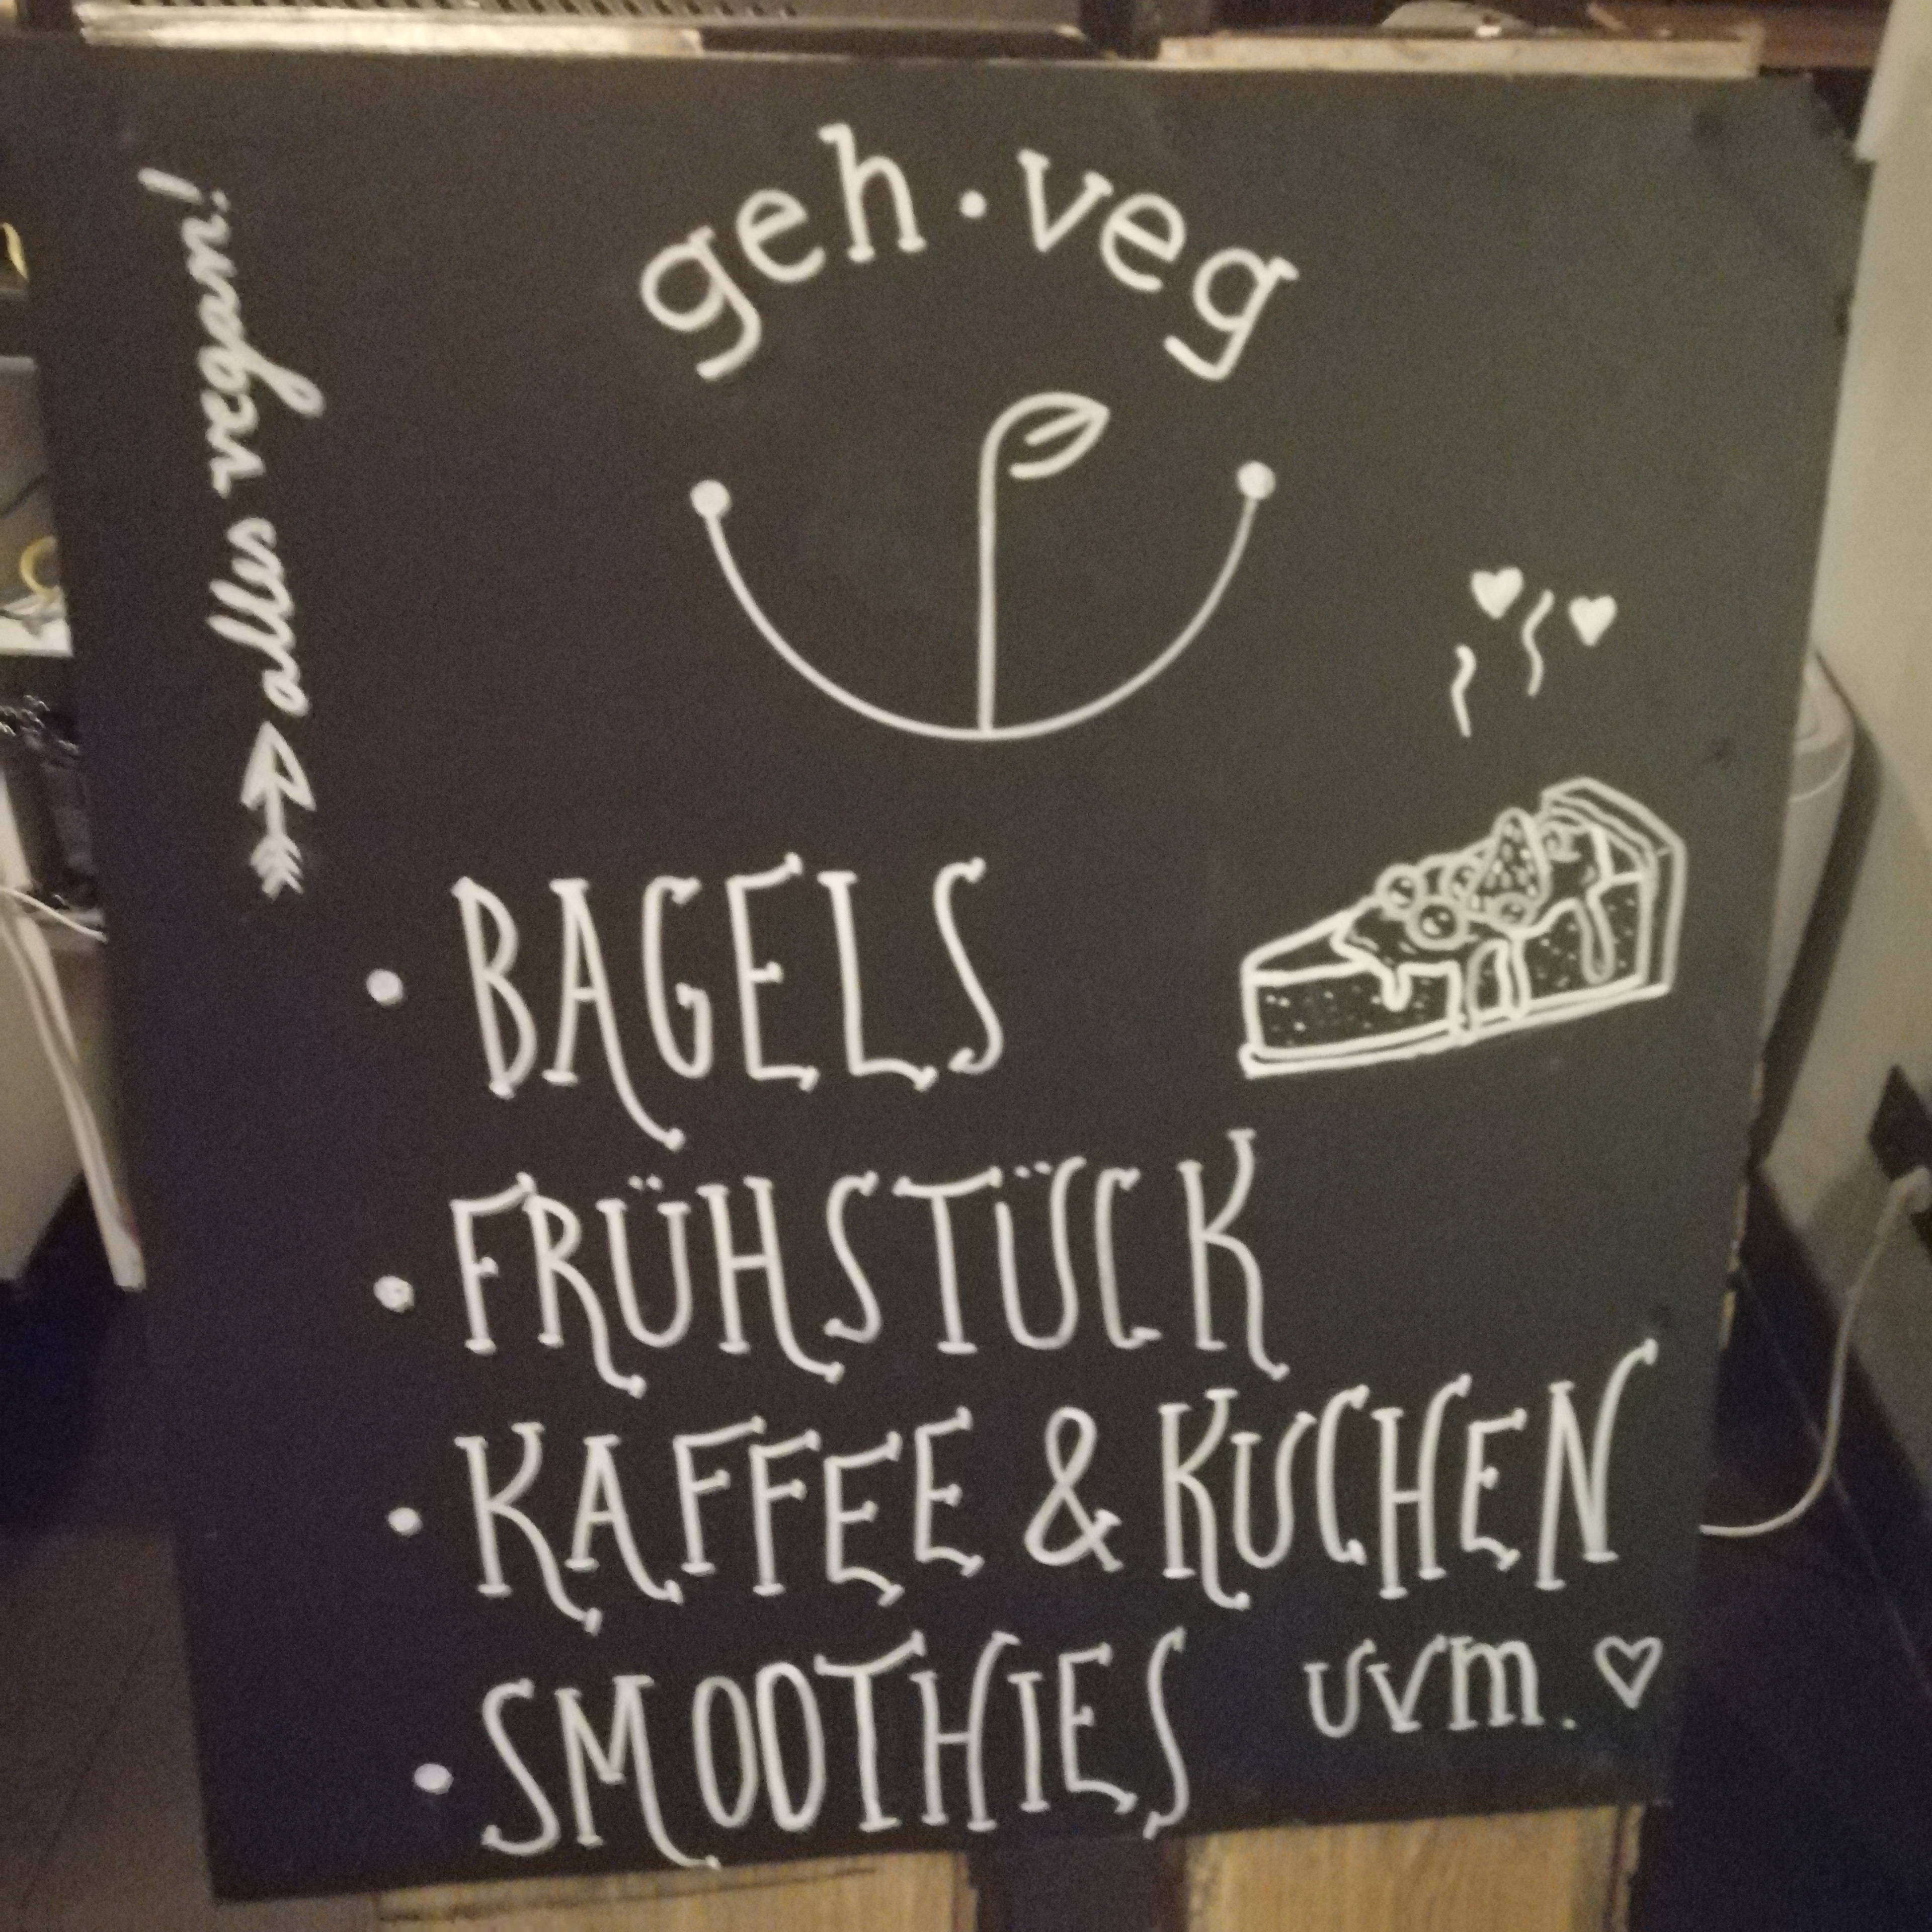 geh·veg
alles vegan!
• BAGELS
• FRÜHSTÜCK
• KAFFEE & KUCHEN
• SMOOTHIES uvm. ♡